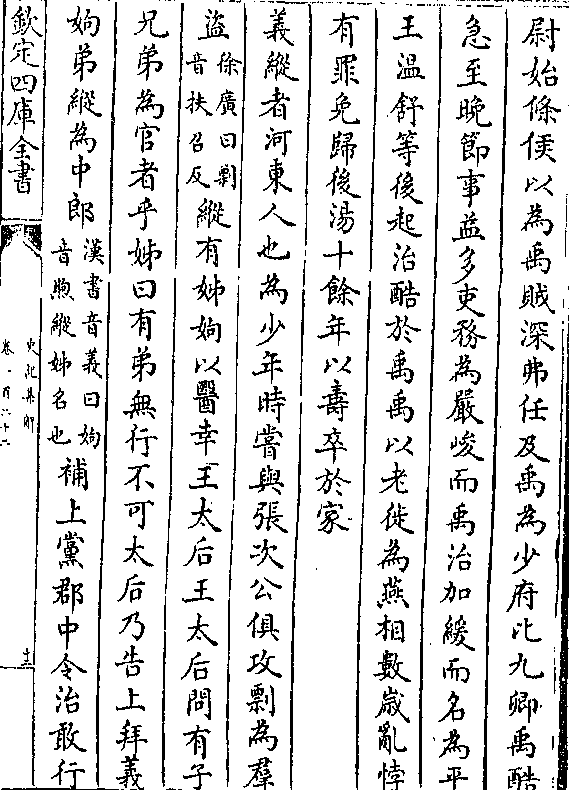 尉始條侯以為禹賊深弗任及禹為少府比九卿禹酷
急至晚節事益多吏務為嚴峻而禹治加緩而名為平
王温舒等後起治酷於禹禹以老徙為燕相數歲亂悖
有罪免歸後湯十餘年以壽卒於家
義縱者河東人也為少年時嘗與張次公俱攻剽為羣
盜徐廣曰剽音扶召反縱有姊姁以醫幸王太后王太后問有子
兄弟為官者乎姊曰有弟無行不可太后乃告上拜義
姁弟縱為中郎漢書音義曰姁音煦縱姊名也補上黨郡中令治敢行
欽定四庫全書
史記集解
卷一百二十二
十二